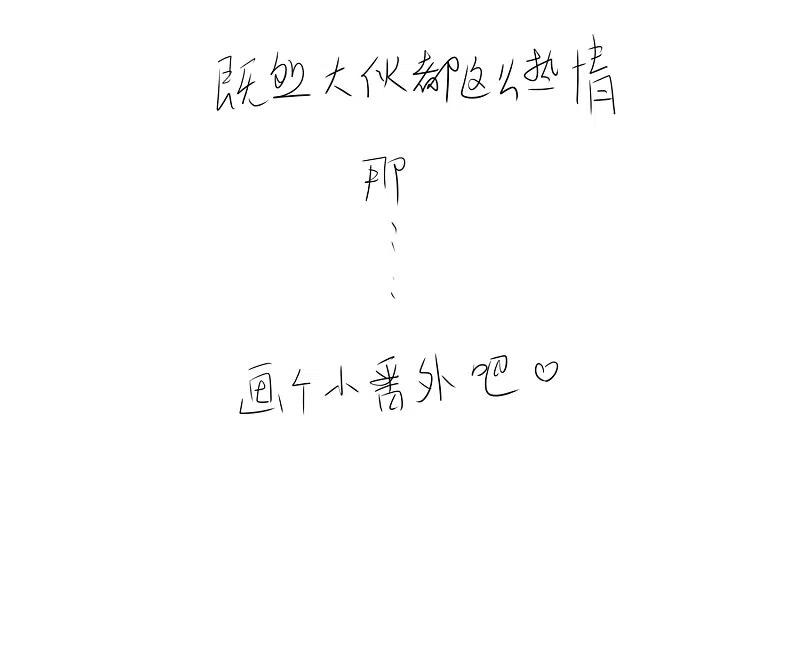 既然大伙都这么热情
那
⋮
画个小番外吧♡